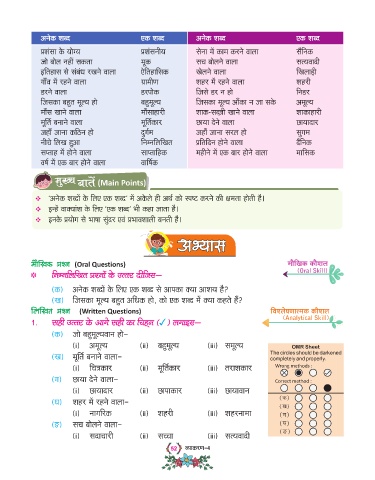 अनेक शब्द एक शब्द अनेक शब्द एक शब्द
प्रशंसा के योग्य प्रशंसनीय सेना में काम करने वाला सैनिक
जो बोल नहीं सकता मूक सच बोलने वाला सत्यवादी
इतिहास से संबंध रखने वाला ऐतिहासिक खेलने वाला खिलाड़ी
गाँव में रहने वाला ग्रामीण शहर में रहने वाला शहरी
डरने वाला डरपोक जिसे डर न हो निडर
जिसका बहुत मूल्य हो बहुमूल्य जिसका मूल्य आँका न जा सके अमूल्य
माँस खाने वाला माँसाहारी शाक-सब्ज़ी खाने वाला शाकाहारी
मूर्ति बनाने वाला मूर्तिकार छाया देने वाला छायादार
जहाँ जाना कठिन हो दुर्गम जहाँ जाना सरल हो सुगम
नीचे लिखा हुआ निम्नलिखित प्रतिदिन होने वाला दैनिक
सप्ताह में होने वाला साप्ताहिक महीने में एक बार होने वाला मासिक
वर्ष में एक बार होने वाला वार्षिक
मुख्य बातें (Main Points)
❖ 'अनेक शब्दों के लिए एक शब्द' में अकेले ही अर्थ को स्पष्ट करने की क्षमता होती है।
❖ इन्हें वाक्यांश के लिए 'एक शब्द' भी कहा जाता है।
❖ इनके प्रयोग से भाषा सुंदर एवं प्रभावशाली बनती है।
अभ्यास
मौखिक प्रश्न (Oral Questions) मौखिक कौशल
(Oral Skill)
निम्नलिखित प्रश्नों के उत्तर दीजिए—
(क) अनेक शब्दों के लिए एक शब्द से आपका क्या आशय है?
(ख) जिसका मूल्य बहुत अधिक हो, को एक शब्द में क्या कहते हैं?
लिखित प्रश्न (Written Questions) विश्लेषणात्मक कौशल
(Analytical Skill)
1. सही उत्तर के आगे सही का चिह्न (✓) लगाइए—
(क) जो बहुमूल्यवान हो–
(i) अमूल्य (ii) बहुमूल्य (iii) समूल्य
(ख) मूर्ति बनाने वाला–
(i) चित्रकार (ii) मूर्तिकार (iii) तराशकार
(ग) छाया देने वाला–
(i) छायादार (ii) छापाकार (iii) छायावान
(घ) शहर में रहने वाला–
(i) नागरिक (ii) शहरी (iii) शहरनामा
(ङ) सच बोलने वाला–
(i) सदाचारी (ii) सच्चा (iii) सत्यवादी
OMR Sheet
The circles should be darkened
completely and properly.
Wrong methods :
Correct method :
(क)
(ख)
(ग)
(घ)
(ङ)
52 व्याकरण-4